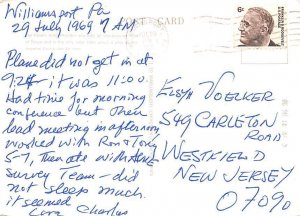 Williamsport Pa
29 July 1969 7 AM
Plane did not get in at
9:24 it was 11:00
Had time for morning
conference but then
lead meeting in afternoon,
worked with Ron + Tony
5-7, then ate with
Survey Team - did
not sleep much
it seemed
Love Charles
CARD
6¢
Elsyn Voelker
549 Carleton
Road
Westfield
New Jersey
07090